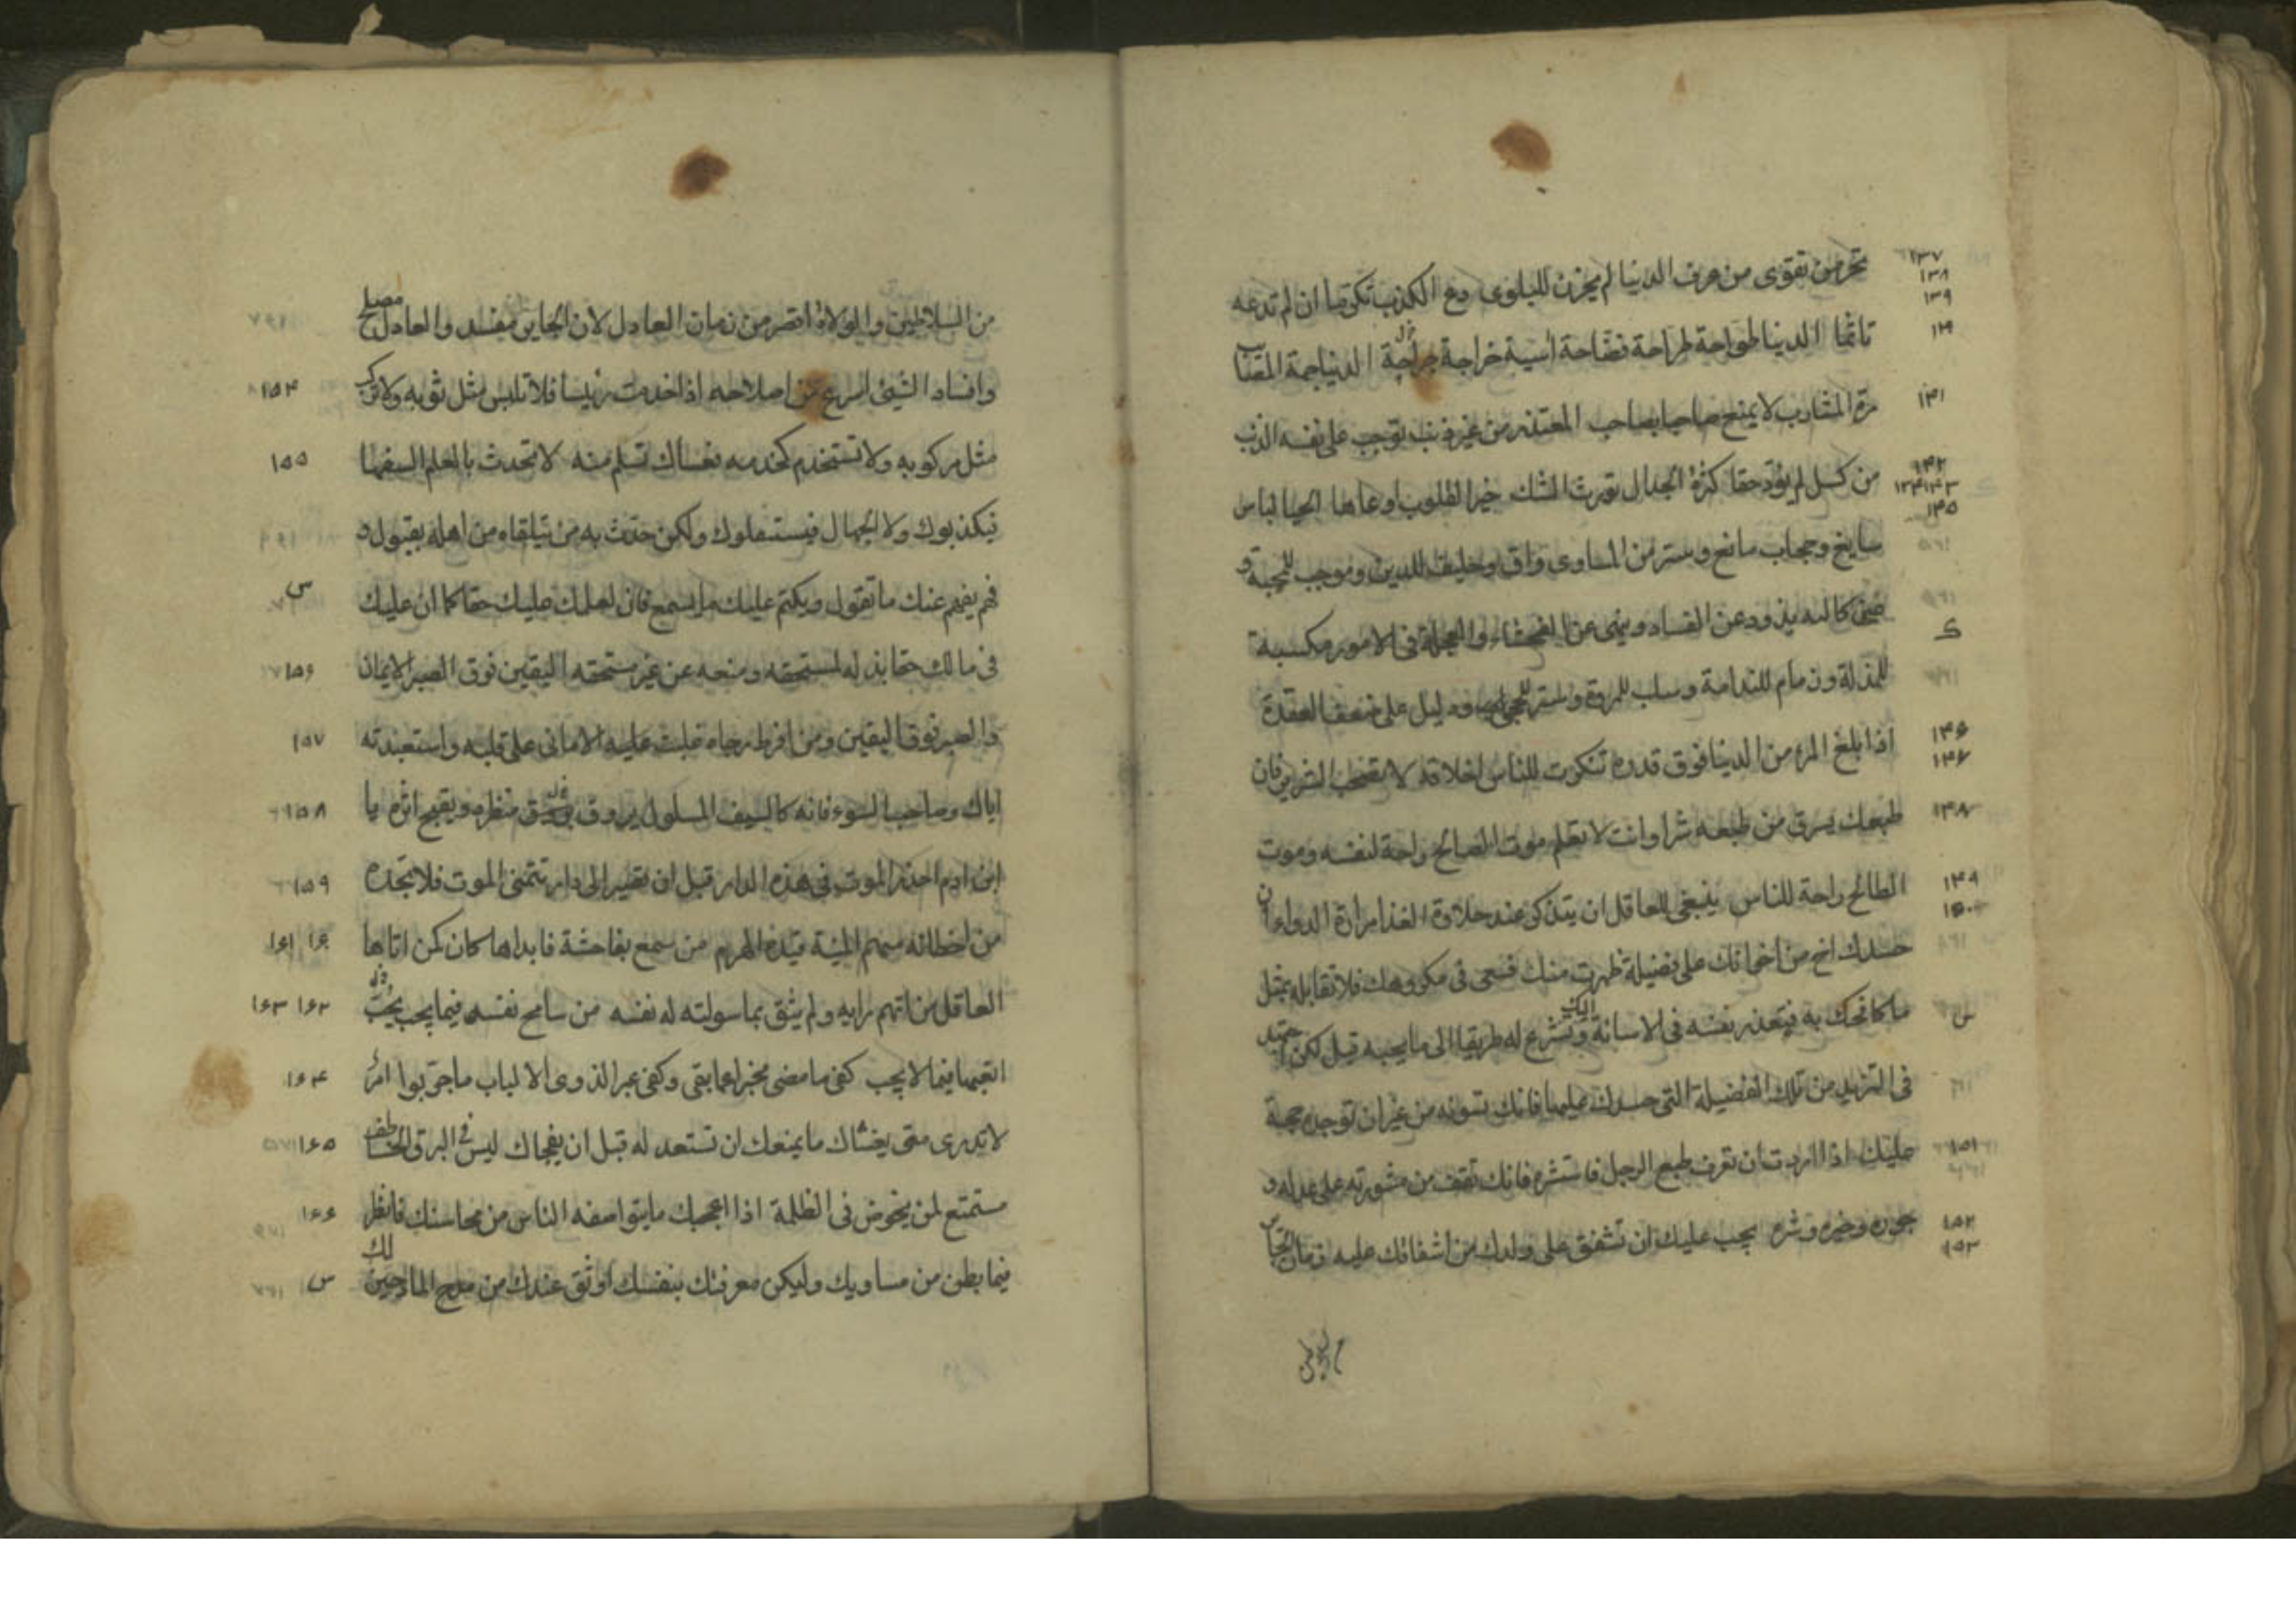 ١٣٧ ١٣٨ ١٣٩ من تقوى من عرف الدنيا لم يحزن للبلوى دع الكذب تكرما ان لم تدعه
١٤٠ تاثما الدنيا طواحة طراحة فضاحة آسية خراجة جراحة الدنيا جمة المصائب
١٤١ مرة المشارب لا يمنح صاحبا بصاحب المعتذر من غير ذنب يوجب على نفسه الذنب
١٤٢ ١٤٣ ١٤٤ ١٤٥ من كسل لم يؤد حقا كثرة الجدال تورث الشك خير القلوب اوعاها الحيا لباس
سابغ وحجاب مانع وستر من المساوى واق وحليف للدين وموجب للمحبة و
كالئه يذود عن الفساد وينهى عن الفحشاء والعجلة فى الامور مكسبة
للمذلة وزمام للندامة وسلب للمروة ودليل على ضعف العقدة
١٤٦ ١٤٧ اذا بلغ المرء من الدنيا فوق قدره تنكرت للناس اخلاقه لا تصحب الشرير فان
١٤٨ طبعك يسرق من طبعه شرا وانت لا تعلم موت الصالح راحة لنفسه وموت
١٤٩ ١٥٠ الطالح راحة للناس ينبغى للعاقل ان يتذكر عند حلاوة الغذا مرارة الدواء ان
حسدك اخ من اخوانك على فضيلة ظهرت منك فسعى فى مكروهك فلا تقابله بمثل
ما كافحك به فيعذر نفسه فى الاسائة اليك وتشرع له طريقا الى ما يحبه فيك لكن اجتهد
فى التزيد من تلك الفضيلة التى حسدك عليها فانك تسوئه من غير ان توجده حجة
١٥١ عليك اذا اردت ان تعرف طبع الرجل فاستشره فانك تقف من مشورته على عدله و
١٥٢ ١٥٣ جوره وخيره وشره يجب عليك ان تشفق على ولدك من اشفاقك عليه زمان الجاير
من السلاطين والولاة اقصر من زمان العادل لان الجاير مفسد والعادل مصلح
١٥٤ وافساد الشئ اسرع من اصلاحه اذا خدمت رئيسا فلا تلبس مثل ثوبه ولا تركب
١٥٥ مثل مركوبه ولا تستخدم كخدمه فعساك تسلم منه لا تحدث بالعلم السفها
فيكذبوك ولا الجهال فيستثقلوك ولكن حدث به من يتلقاه من اهله بقبول و
فهم يفهم عنك ما تقول ويكتم عليك ما يسمع فان لعلمك عليك حقا كما ان عليك
١٥٦ فى مالك حقا بذله لمستحقه ومنعه عن غير مستحقه اليقين فوق الصبر الايمان
١٥٧ فوق اليقين ومن افرط رجاه غلبت عليه الامانى على قلبه واستعبدته
١٥٨ اياك وصاحب السوء فانه كالسيف المسلول يروق منظره ويقبح اثره يا
١٥٩ ابن ادم احذر الموت فى هذه الدار قبل ان تصير الى دار تتمنى الموت فلا تجده
١٦٠ ١٦١ من اخطائه سهم المنية قيده الهرم من سمع بفاحشة فابداها كان كمن اتاها
١٦٢ ١٦٣ العاقل من اتهم رايه ولم يثق بما سولته له نفسه من سامح نفسه فيما يحب
١٦٤ اتعبها فيما لا يحب كفى ما مضى مخبرا عما بقى وكفى عبرا لذوى الالباب ما جربوا امر
١٦٥ لا تدرى متى يغشاك ما يمنعك ان تستعد له قبل ان يفجاك ليس فى البرق الخاطف
١٦٦ مستمتع لمن يخوض فى الظلمة اذا اعجبك ما يتواصفه الناس من محاسنك فانظر
فيما بطن من مساويك وليكن معرفتك بنفسك اوثق عندك من مدح المادحين لك